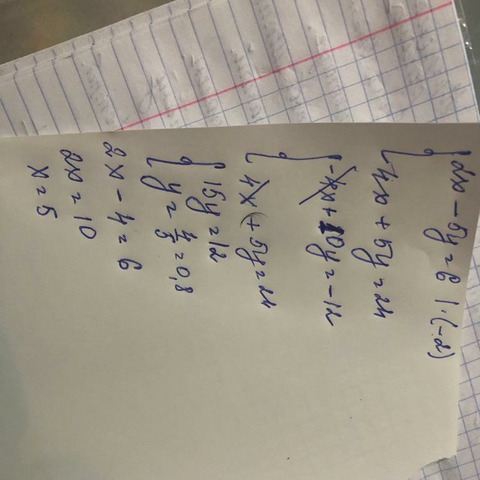 2x - 5y = 6 | · (-2)
4x + 5y = 24
-4x + 10y = -12
4x + 5y = 24
15y = 12
y = 4/5 = 0,8
2x - 4 = 6
2x = 10
x = 5